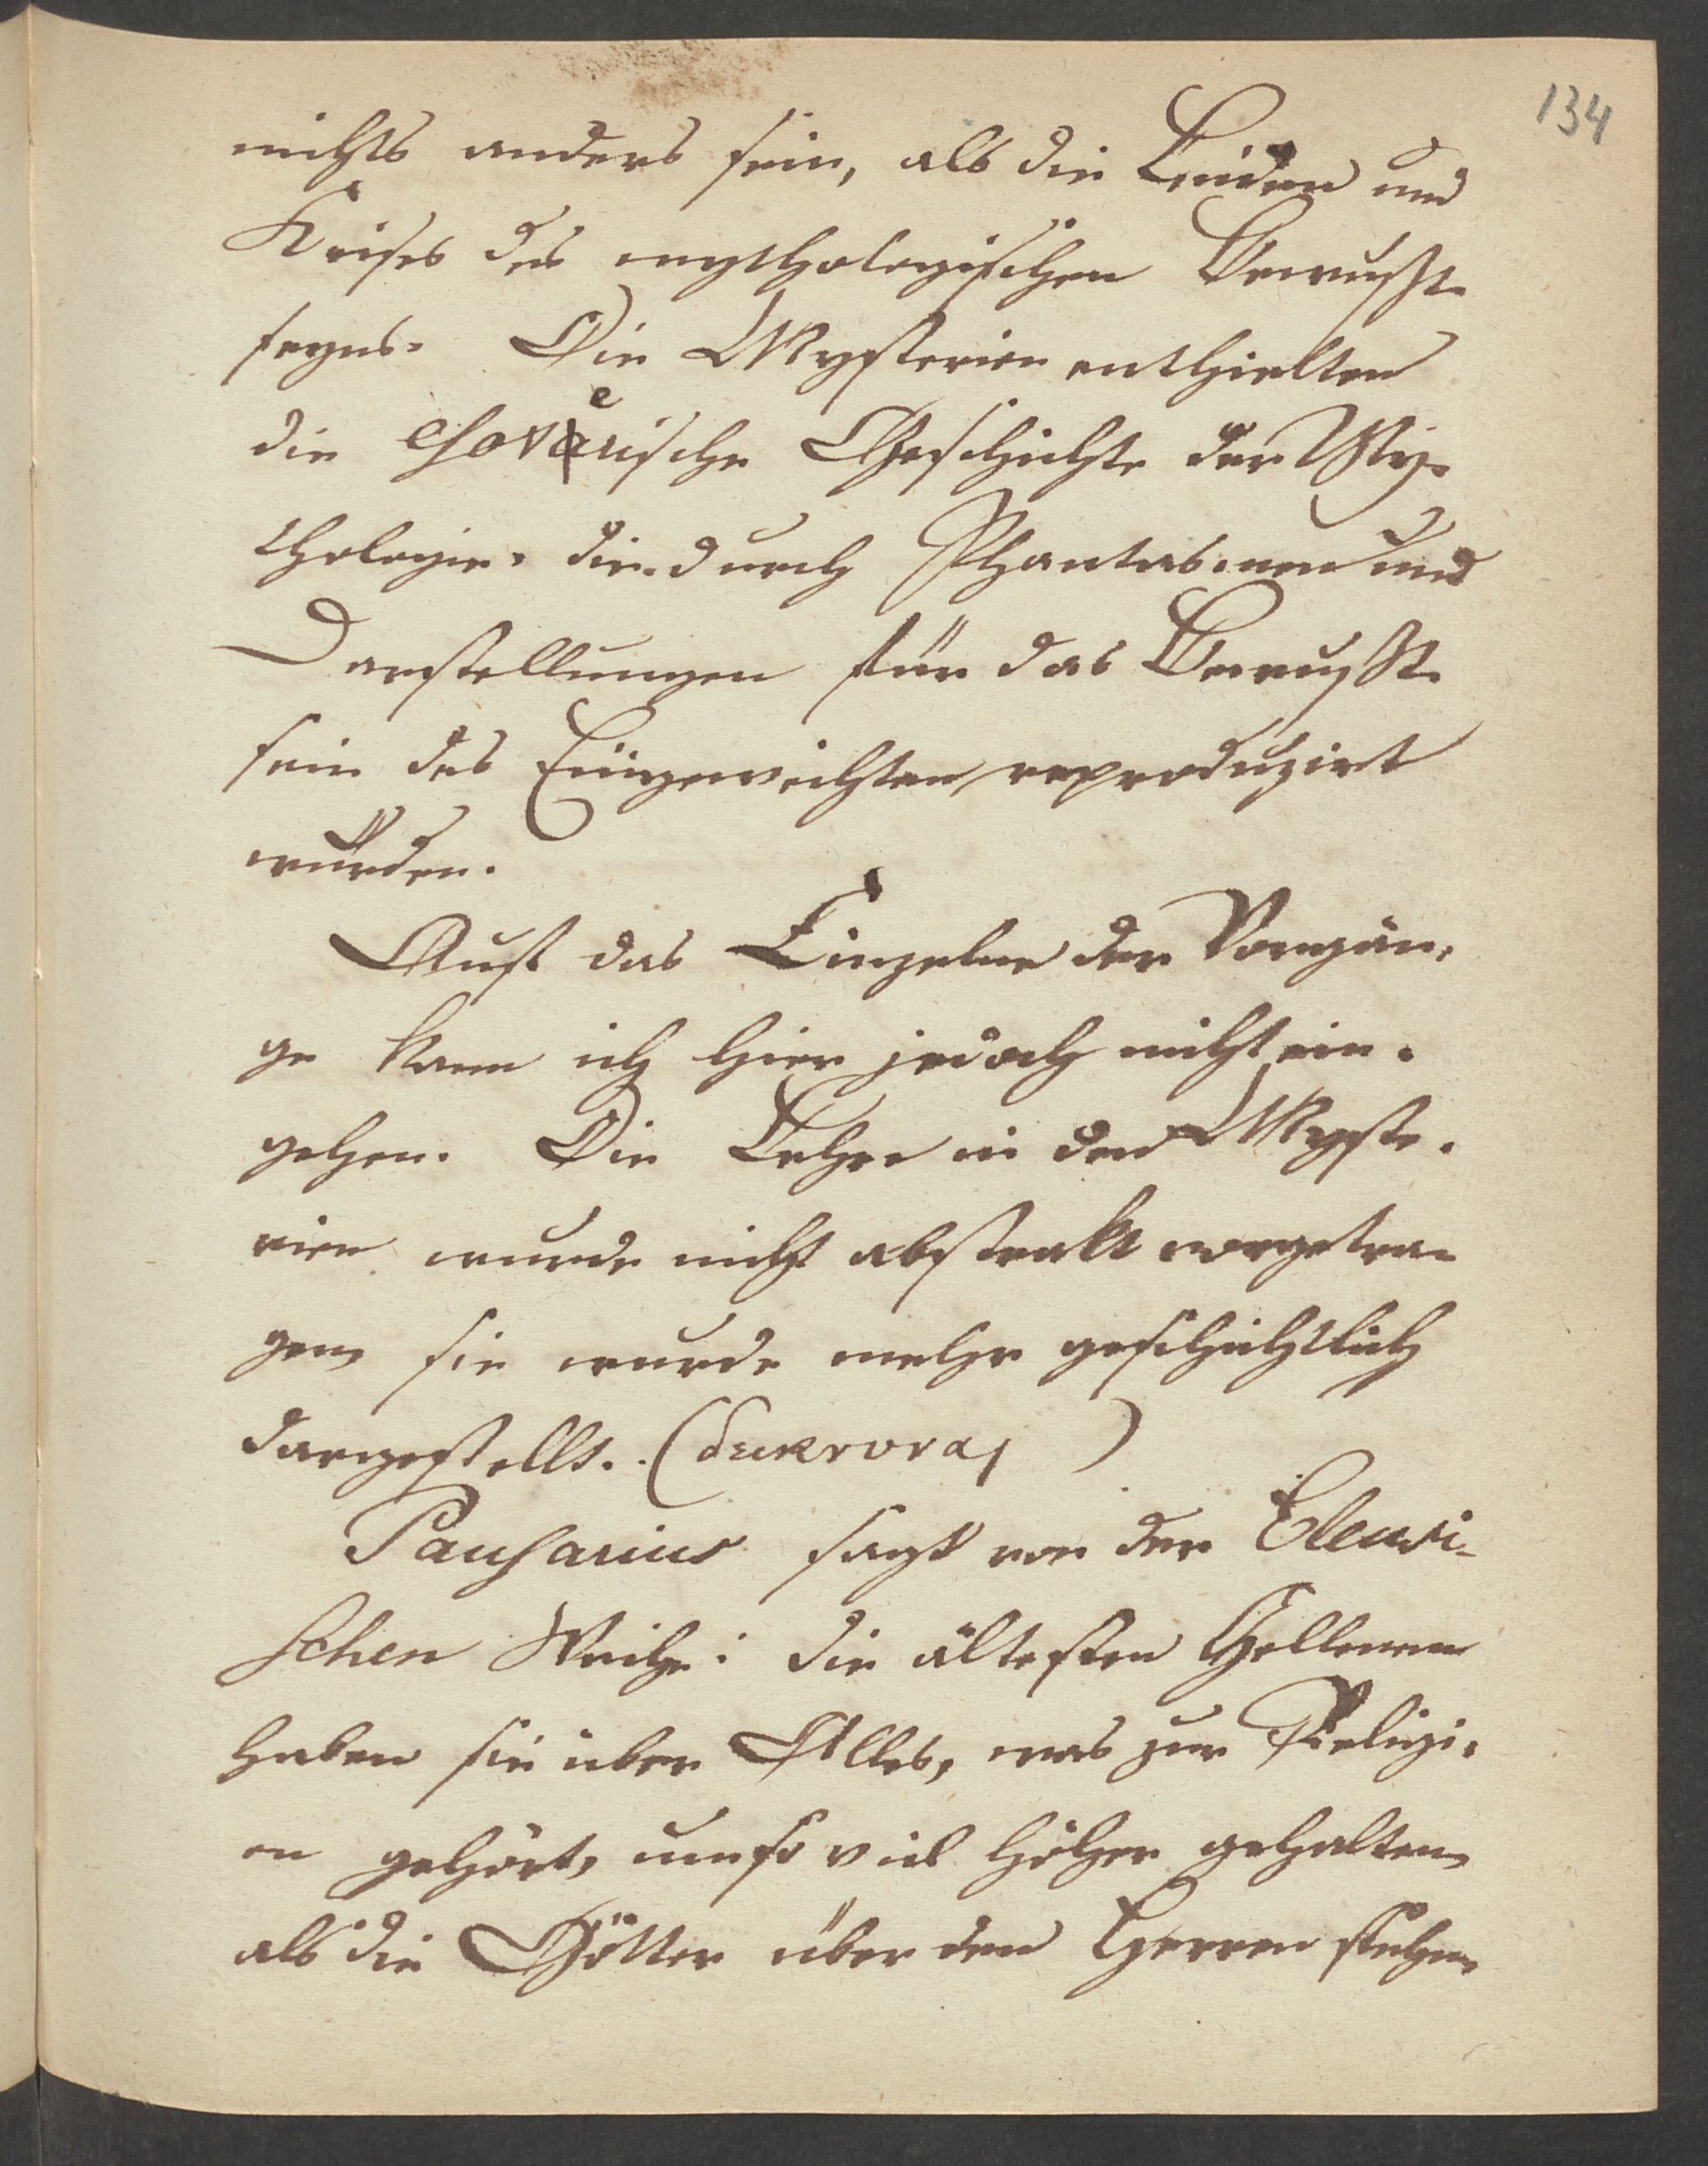 134
nichts anders sein, als die Leiden und
Krisis des mythologischen Bewußt-
seyns. Die Mysterien enthielten
die esoterische Geschichte der My-
thologie, die durch Phantasmen und
Darstellungen für das Bewußt-
sein des Eingeweihten reproduzirt
wurden.
Auf das Einzelne der Vorgän-
ge kann ich hier jedoch nicht ein-
gehen. Die Lehre in den Myste-
rien wurde nicht abstrakt vorgetra-
gen, sie wurde mehr geschichtlich
dargestellt. (δεικνυται )
Pausanius sagt von der Eleusi-
schen Weihe: die ältesten Hellenen
haben sie über Alles, was zur Religi-
on gehört, umso viel höher gehalten,
als die Götter über den Heroen stehen,